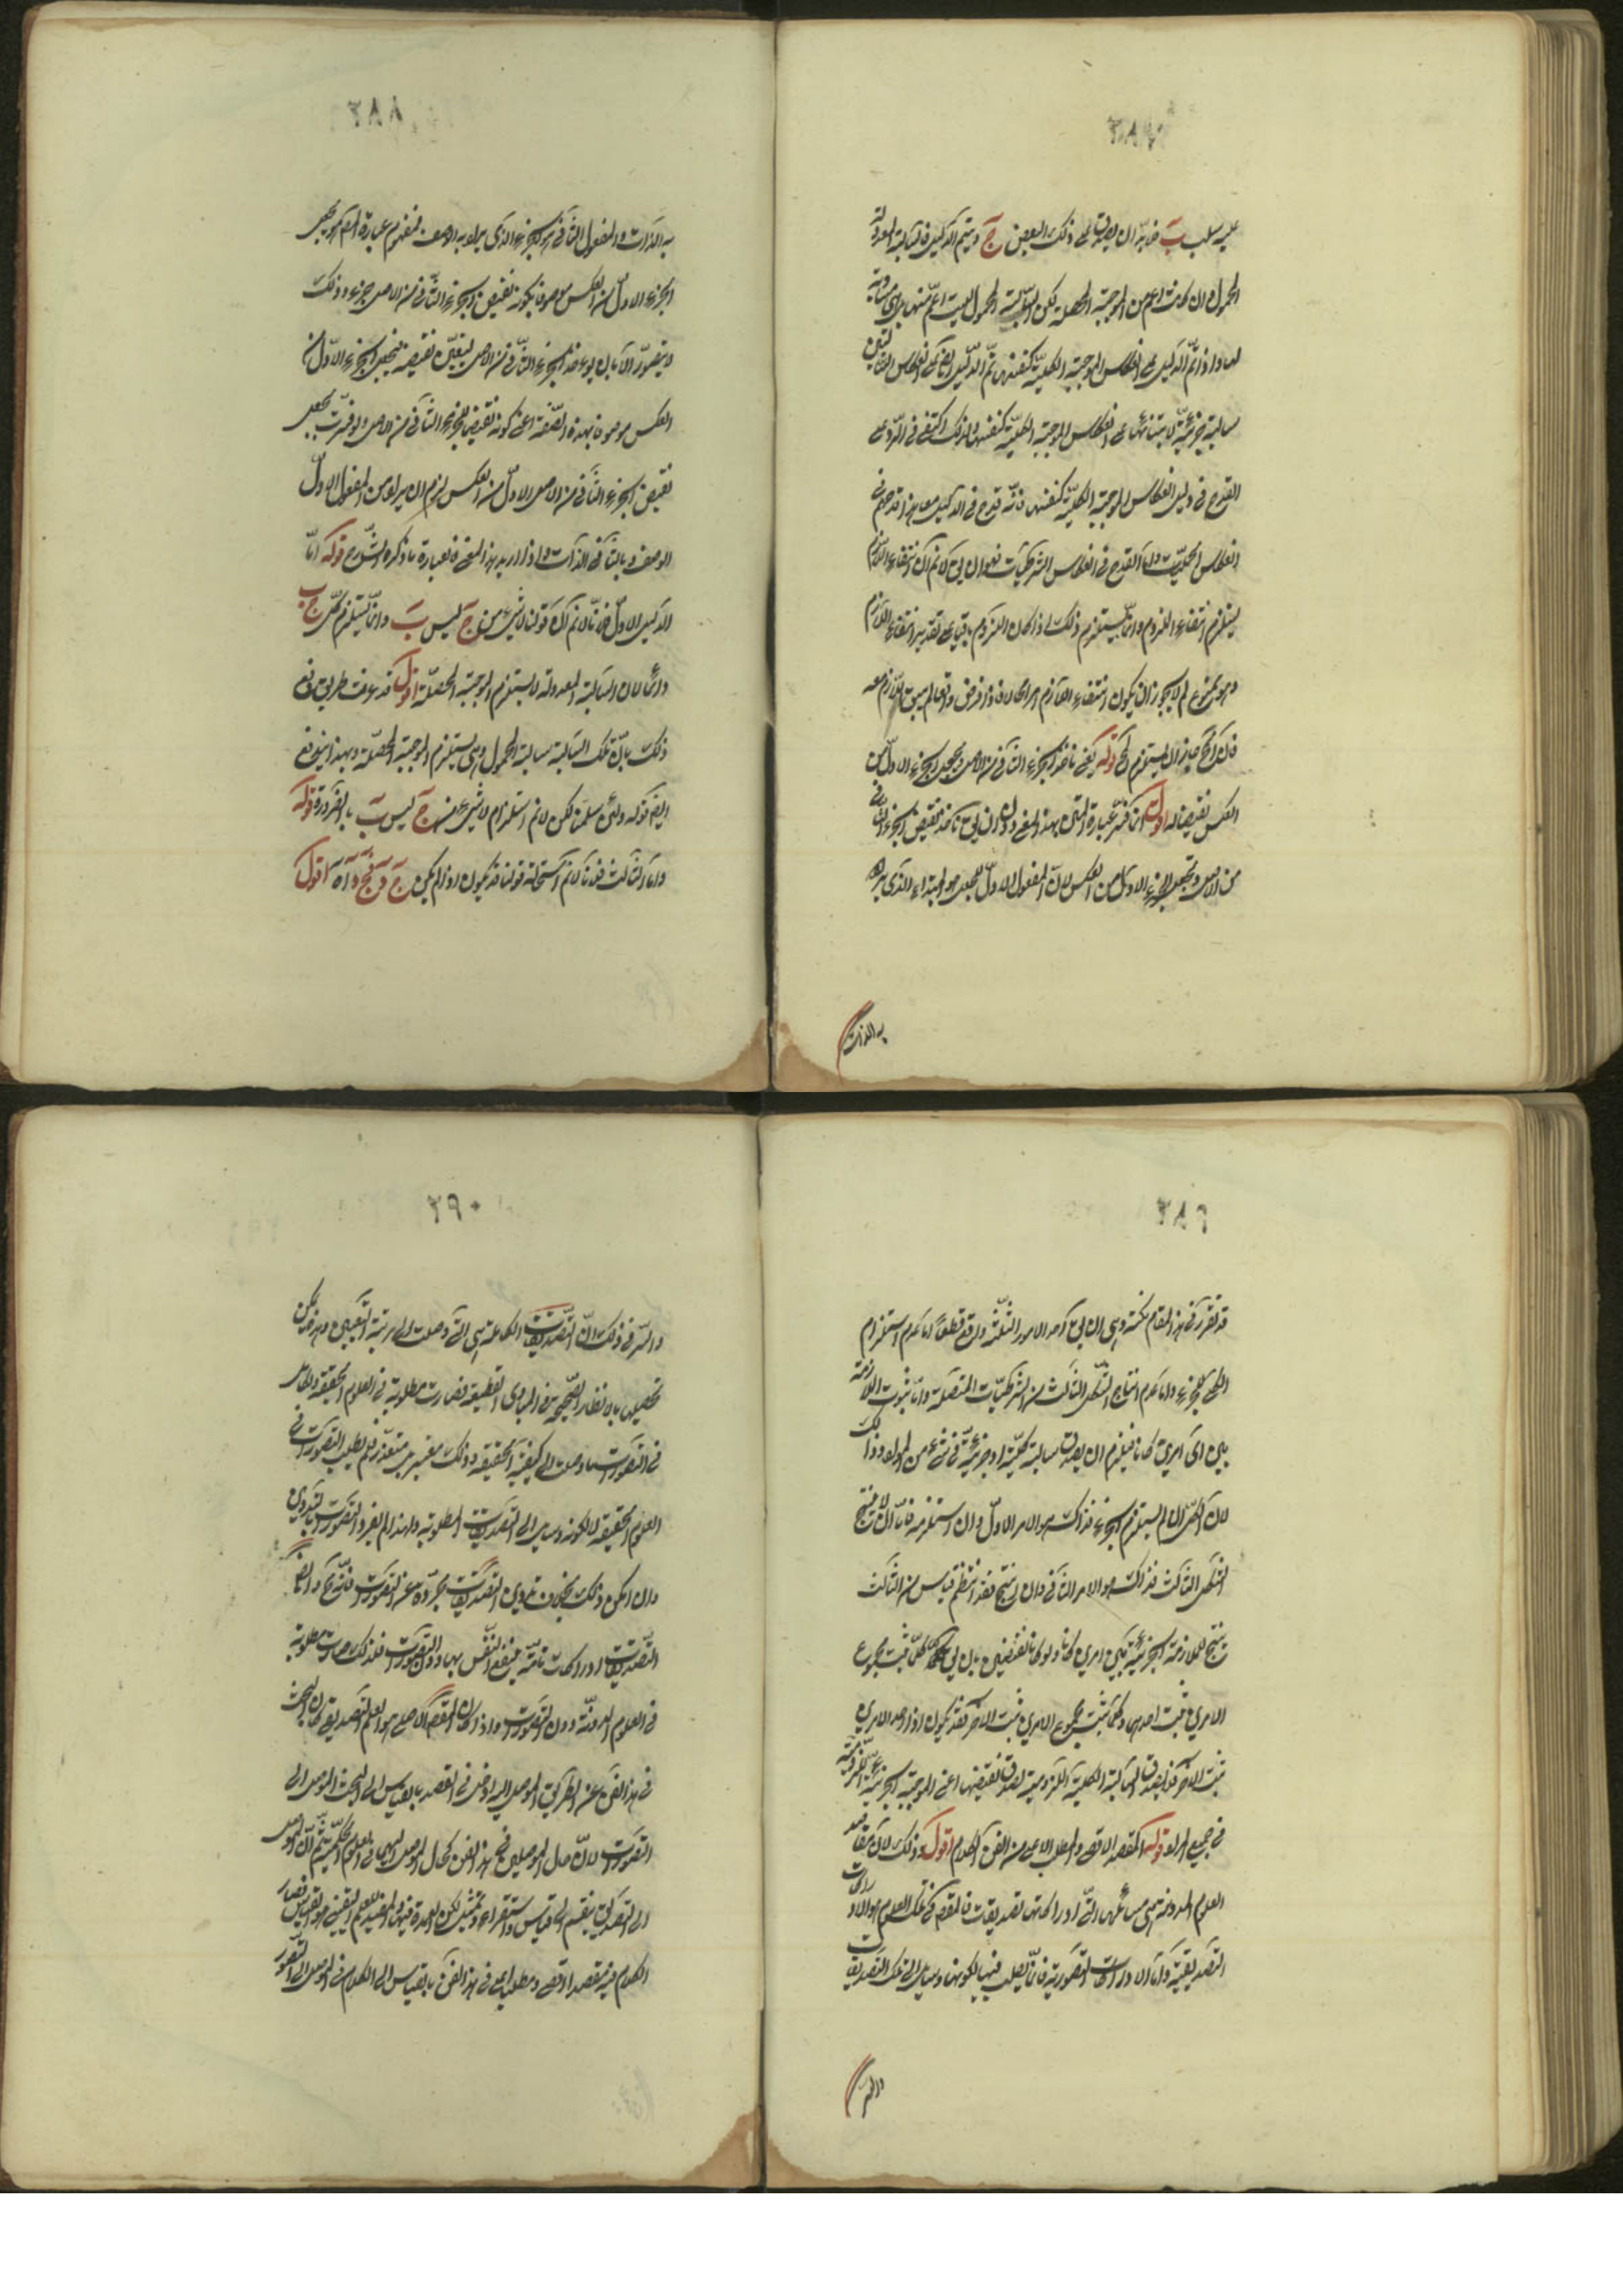 عليه سلب ب فلا بد ان يصدق على ذلك البعض ج ويتم الدليل فالسالبة المعدولة
المحمول وان كانت اعم من الموجبة المحصلة لكن السالبة المحمول ليست اعم منها بل هى مساوية
لها واذا تم الدليل على انعكاس الموجبة الكلية كنفسها تم الدليل ايضا على انعكاس السالبتين
سالبة جزئية لابتنائهما على انعكاس الموجبة الكلية كنفسها ولذلك اكتفى فى الرد على
القدح فى دليل انعكاس الموجبة الكلية كنفسها فانه قدح فى الدليل معا هذا قدحه فى
انعكاس الحمليات واما القدح فى انعكاس الشرطيات فهو ان يقال لا نم ان انتفاء اللازم
يستلزم انتفاء الملزوم وانما يستلزم ذلك اذا كان اللزوم باقيا على تقدير انتفاء اللازم
وهو ممنوع لم لا يجوز ان يكون انتفاء اللازم امرا محالا فاذا فرض واقعا لم يبق اللازم معه
فان المحال جاز ان يستلزم المحال قوله يعنى ناخذ الجزء الثانى من الاصل ونجعل الجزء الاول من
العكس نقيضا له اقول انما فسر عبارة المتن بهذا المعنى والاولى ان يقال ناخذ نقيض الجزء الثانى
من الاصل ونجعله الجزء الاول من العكس لان المفعول الاول للجعل هو المبتداء الذى يراد
به الذات
٢٨٨
به الذات والمفعول الثانى هو الجزء الذى يراد به الوصف فمفهوم عبارة المتن انه يجعل
الجزء الاول من العكس موصوفا بكونه نقيض الجزء الثانى من الاصل جزء وذلك
لا يتصور الا بان يوخذ الجزء الثانى من الاصل ليتعين نقيضه فيجعل الجزء الاول من
العكس موصوفا بهذه الصفة اعنى كونه نقيضا للجزء الثانى من الاصل ولو فسرت بجعل
نقيض الجزء الثانى من الاصل الاول من العكس لزم ان يراد من المفعول الاول
الوصف وبالثانى الذات واذا اريد هذا المعنى فالعبارة ما ذكره الشارح قوله اما
الدليل الاول فلانا لا نم ان قولنا لا شىء من ج ليس ب وانما يستلزم كل ج ب
دائما لان السالبة المعدولة لا يستلزم الموجبة المحصلة اقول قد عرفت طريق دفع
ذلك بان تلك السالبة سالبة المحمول وهى يستلزم الموجبة المحصلة وبهذا يندفع
ايضا قوله ولئن سلمنا لكن لا نم استلزام لا شىء من ج ليس ب بالضرورة قوله
واما الثالث فلانا لا نم استحالة قولنا قد يكون اذا لم يكن ج د فج د آه اقول
٢٨٩
قد تقرر فى هذا المقام نكتة وهى ان يقال احد الامور الثلثة واقع قطعا اما عدم استلزام
الكل للجزء واما عدم انتاج الشكل الثالث من الشرطيات المتصلة واما ثبوت الملازمة
بين اى امرين كانا فيلزم ان يصدق سالبة كلية او جزئية فى شىء من المواد وذلك
لان الكل ان لم يستلزم الجزء فذاك هو الامر الاول وان استلزمه فاما ان لا ينتج
الشكل الثالث فذاك هو الامر الثانى وان انتج فقد انتظم قياس من الثالث
ينتج للملازمة الجزئية بين امرين كانا ولو كانا نقيضين بان يقال كلما ثبت مجموع
الامرين ثبت احدهما وكلما ثبت مجموع الامرين ثبت الاخر فقد يكون اذا ثبت احد الامرين
ثبت الاخر فلا يصدق السالبة الكلية اللزومية لصدق نقيضها اعنى الموجبة الجزئية اللزومية
فى جميع المواد قوله المقصد الاقصى والمطلب الاعلى من الفن الكلام اقول وذلك لان مقاصد
العلوم المدونة هى مسائلها التى ادراكاتها تصديقات فالمقصد فى تلك العلوم هو الادراكات
التصديقية واما الادراكات التصورية فانما يطلب فيها لكونها وسائل الى تلك التصديقات
والسر
٢٩٠
والسر فى ذلك ان التصديقات الكاملة هى التى وصلت الى مرتبة اليقين وهو ممكن
تحصيل بالانظار الصحيحة من المبادى القطعية فصارت مطلوبة فى العلوم الحقيقة والكامل
فى التصورات ما وصلت الى كيفية الحقيقة وذلك عسير بل متعذر فلم يطلب التصورات فى
العلوم الحقيقة الا لكونه وسايل الى التصديقات المطلوبة ولهذا لم يفرد التصورات بالتدوين
وان امكن ذلك بخلاف تدوين التصديقات مجردة عن التصورات فانه مح وايضا
التصديقات ادراكات تامة ينتفع النفس بها دون التصورات فلذلك صارت مطلوبة
فى العلوم المدونة دون التصورات واذا كان المقصد الاصلى هو العلم التصديقى كان البحث
فى هذا الفن عن الطريق الموصل اليه ادخل فى القصد بالقياس الى البحث الموصل الى
التصورات لان حال الموصلين فى هذا الفن كحال الموصل اليهما فى العلوم الحكمية ثم ان الموصل
الى التصديق ينقسم الى قياس واستقراء وتمثيل لكن العمدة فيها والمفيد للعلم اليقينى هو القياس فصار
الكلام فيه مقصدا اقصى ومطلبا اعلى فى هذا الفن بالقياس الى الكلام فى الموصل الى التصور